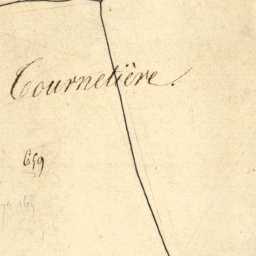 Tournetière.
659